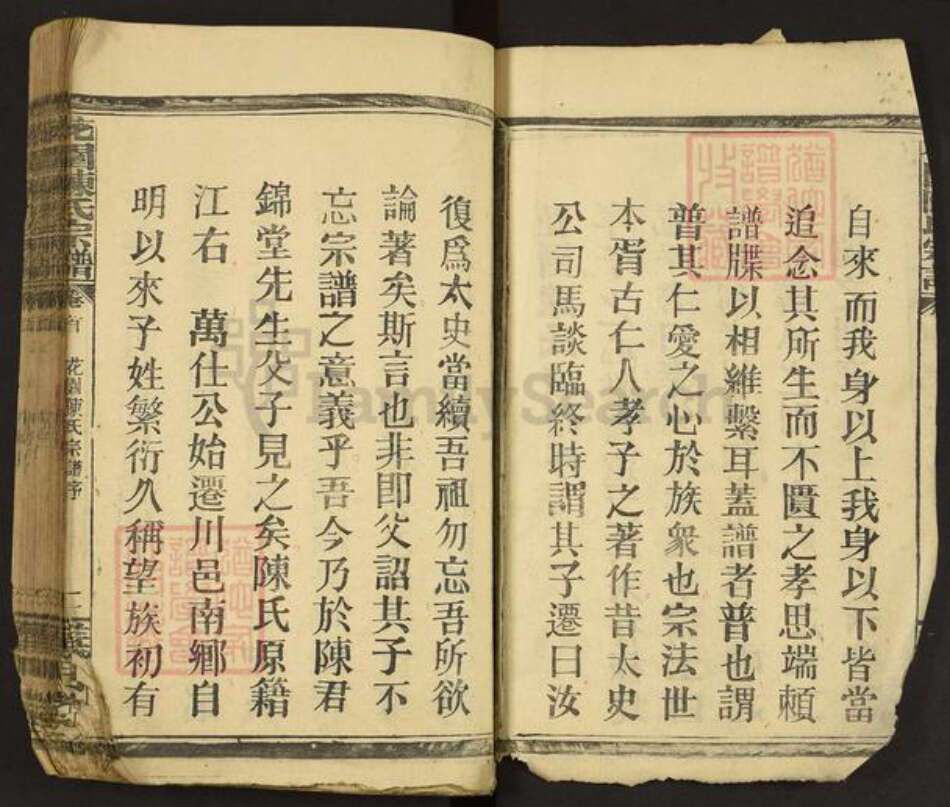 自來而我身以上我身以下皆當
追念其所生而不匱之孝思端賴
譜牒以相維繫耳蓋譜者普也謂
普其仁愛之心於族衆也宗法世
本胥古仁人孝子之著作昔太史
公司馬談臨終時謂其子遷曰汝
復爲太史當續吾祖勿忘吾所欲
論著矣斯言也非即父詔其子不
忘宗譜之意義乎吾今乃於陳君
錦堂先生父子見之矣陳氏原籍
江右 萬仕公始遷川邑南鄉自
明以來子姓繁衍久稱望族初有
花園陳氏宗譜 卷首 花園陳氏宗譜序 一
FamilySearch